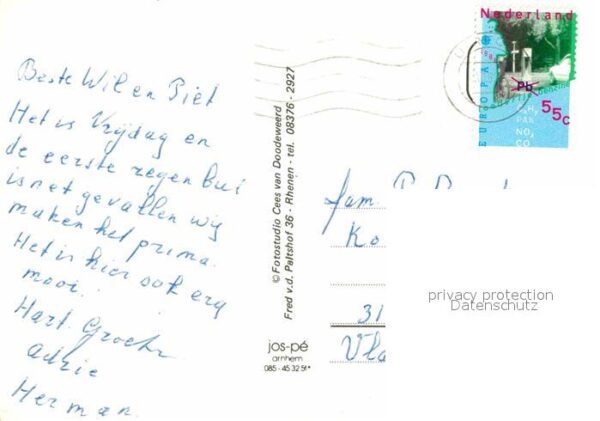 Beste Wil en Piet
Het is Vrijdag en
de eerste regen bui
is net gevallen wij
maken het prima.
Het is hier ook erg
mooi.
Hart. Groetn
Adrie
Herman.
© Fotostudio Cees van Doodeweerd
Fred v.d. Paltshof 36 - Rhenen - tel. 08376 - 2927
jos-pé
arnhem
085 - 45 32 51*
Nederland
EUROPA
Pb
55c
PAK
NOx
CO
fam. P.
Ko
31
Vla
privacy protection
Datenschutz